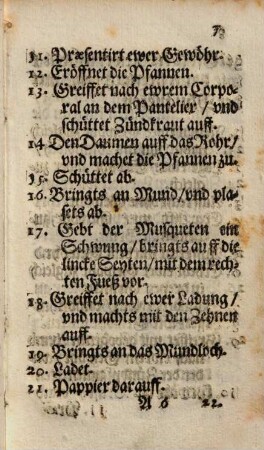 7
11. Præsentirt ewer Gewöhr.
12. Eröffnet die Pfannen.
13. Greiffet nach ewrem Corpo-
ral an dem Pantelier / vnd
schüttet Zündkraut auff.
14. Den Daumen auff das Rohr /
vnd machet die Pfannen zu.
15. Schüttet ab.
16. Bringts an Mund / vnd pla-
sets ab.
17. Gebt der Musqueten ein
Schwung / bringts auff die
lincke Seyten / mit dem rech-
ten Fueß vor.
18. Greiffet nach ewer Ladung /
vnd machts mit den Zehnen
auff.
19. Bringts an das Mundloch.
20. Ladet.
21. Pappier darauff.
A 6 22.